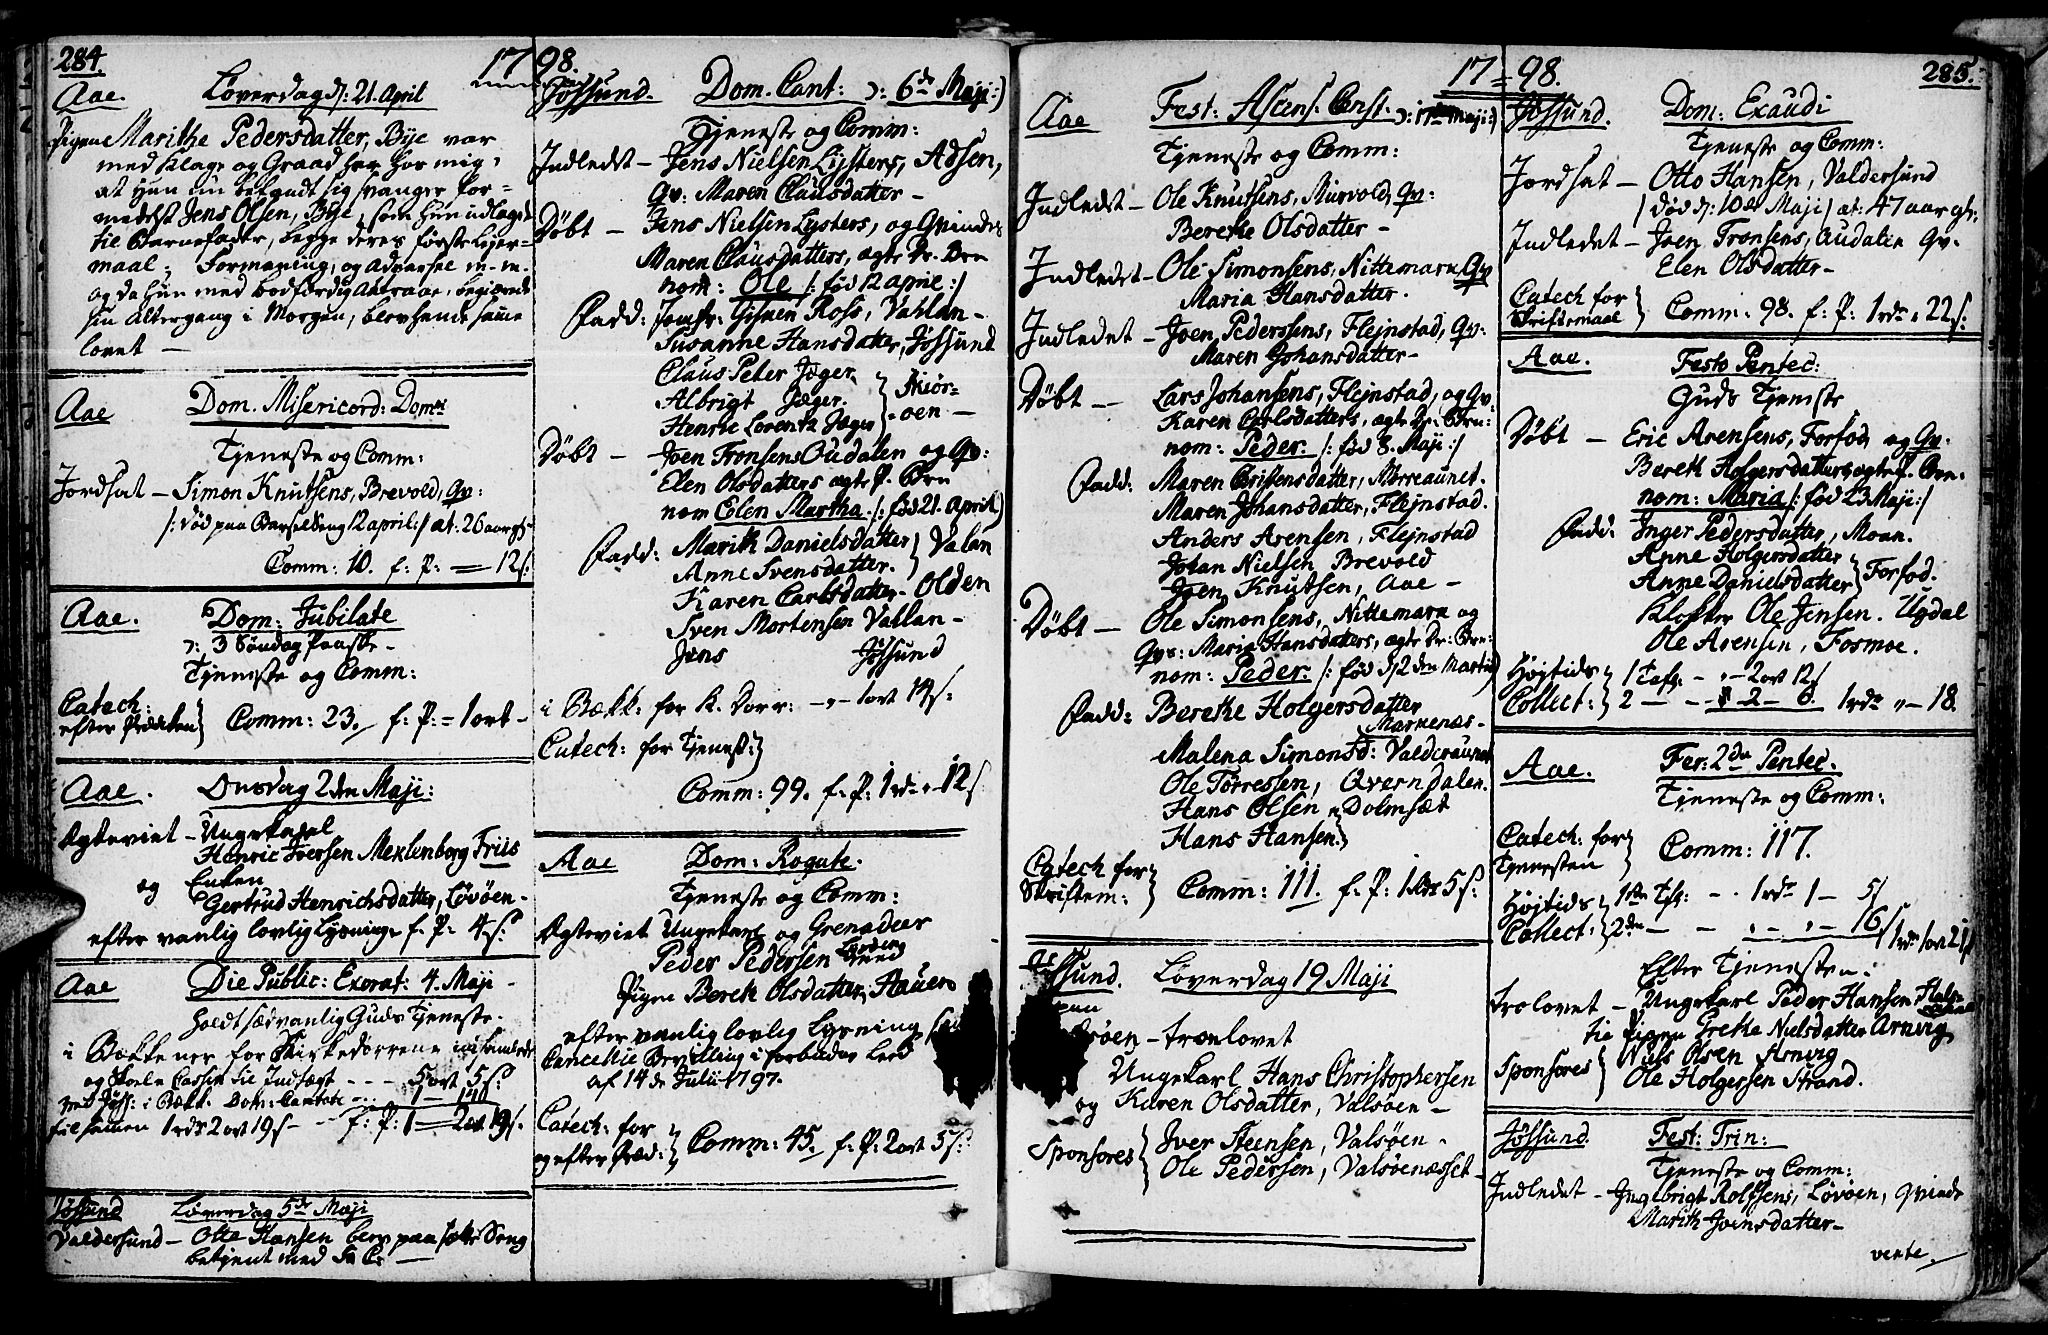 284.
1798.
Aae. Løverdag d: 21. April
Pigen Marithe Pedersdatter, Bye var
med Klage og Graad her hos mig,
at hun nu befandt sig svanger for=
medelst Jens Olsen, Bye, som hun udlagde
til Barnefader, begge deres første Lejer=
maal; Formaning, og Advarsel m. m.
og da hun med bodfærdig Attraae, begiærede
sin Altergang i Morgen, blev hende samme
lovet —
Aae Dom. Misericord: Domni
Tjeneste og Comm:
Jordsat — Simon Knutsens, Brevold, Qv:
/: død paa Barselseng 12 april:/ æt: 26 aar gl:
Comm: 10. f: P: — 12 s:
Aae. Dom: Jubilate
ɔ: 3 Søndag Paaske –
Tjeneste og Comm:
Catech:
efter Prædiken} Comm: 23. f: P: = 1 ort –
Aae. Onsdag 2den Maji:
Ægteviet – Ungekarl
Henric Iversen Meklenborg Friis
og Enken
Gertrud Henrichsdatter, Løvøen –
efter vanlig lovlig Lysning f: P: 4 s:
Aae Die Public: Exorat: 4. Maji –
holdt sædvanlig Guds Tjeneste.
i Bækkener for Kirkedørrene
og Skole Cassen til Indsægt - - - 5 ort 5 s:
med Jøss: i Bækk: Dom: Cantate - - - 1 — 14
tilsamen 1 rdr 2 ort 19 s – - f: P: 1 — 2 ort 19 s.
Jøssund Løverdag 5de Maji
Valdersund – Otte Hansen berr paa sotte Seng
betjent med S. C. —
Jøssund. Dom. Cant: ɔ: 6de Maji:)
Tjeneste og Comm:
Indledt – Jens Nielsen Lysters, Adsen,
Qv: Maren Clausdatter –
Døbt – Jens Nielsen Lysters, og Qvindes
Maren Clausdatters, ægte Dr. Brn
nom: Ole /: fød 12 april :/
Fadd: Jomfr: Gisken Ross, Vallan –
Susanne Hansdatter, Jøssund
Claus Peter Jæger
Albrigt Jæger.
Henric Lorentz Jæger} Kiør-
oen —
Døbt – Joen Tronsens Oudalen og Qv:
Elen Olsdatters ægte P. Brn
nom Eelen Martha. /: fød 21. April:)
Fadd: Marith Danielsdatter
Anne Svensdatter.} Valan
Karen Carlsdatter – Olden
Sven Mortensen Vallan –
Jens Jøssund
i Bækk: for K. Dorr: – „ – 1 ort 14 s:
Catech: for Tjenest:}
Comm: 99. f: P: 1 rdr „ 12 s
Aae Dom: Rogate.
Tjeneste og Comm:
Ægteviet Ungekarl og Grenadeer
Peder Pedersen
Pigen Bereth Olsdatter, Hauen
efter vanlig lovlig Lysning
Cancellie Bevilling i forbuden Leed
af 14de Julii 1797.
Catech: for
og efter Præd:} Comm: 45. f: P: 2 ort 5 s:
17=98.
285.
Aae Fest: Ascens: Christ. ɔ: 17de Maji:)
Tjeneste og Comm:
Indledt – Ole Knutsens, Murvold, Qv:
Berethe Olsdatter –
Indledet – Ole Simonsens, Nittemark, Qv
Maria Hansdatter.
Indledet – Joen Pederssens, Flejnstad, Qv:
Maren Johansdatter –
Døbt — Lars Johansens, Flejnstad, og Qv:
Karen Carlsdatters, ægte Dr: Brn:
nom: Peder. /: fød 8. Maji :/
Fadd: Maren Christensdatter, Morreaunet.
Maren Johansdatter, Flejnstad.
Anders Arensen, Flejnstad
Johan Nielsen Brevold
Joen Knutsen, Aae –
Døbt — Ole Simonsens, Nittemark og
Qvs: Maria Hansdatters, ægte Dr: Brn:
nom: Peder. /: fød d: 2den Martii)
Fadd: Berethe Holgersdatter
Marknæs –
Malena Simonsd: Valderaunet
Ole Torressen, Qverndalen.
Hans Olsen
Hans Hansen} Dolmsæt
Catech for
Skriftem:} Comm: 111. f: P: 1 rdr 5 s:
Jøssund. Løverdag 19 Maji
– trovlovet
Ungekarl Hans Christophersen
og Karen Olsdatter, Valsøen –
Sponsores} Iver Steensen, Valsøen –
Ole Pedersen, Valsøenæsset –
Jøssund. Dom: Exaudi
Tjeneste og Comm:
Jordsat – Otto Hansen, Valdersund
/ død d: 10de Maji / æt: 47 aar gl:
Indledet – Joen Tronsens, Audalen Qv:
Elen Olsdatter –
Catech for
Skriftemaal} Comm: 98. f: P: 1 rdr „ 22 s:
Aae. Festo Pentec:
Guds Tjeneste
Døbt – Eric Arensens, Forfod og Qv:
Bereth Holgersdatters ægte P. Brn:
nom: Maria /: fød 23 Maji:/
Fadd: Inger Pedersdatter, Moan.
Anne Holgersdatter
Anne Danielsdatter} Forfod.
Klokker Ole Jensen. Ugdal
Ole Arensen, Fosmoe.
Højtids
Collect:} 1 Tafl – „ – 2 ort 12 s
2 — – 2 – 6. 1 rdr „ – 18.
Aae. Fer: 2da Pentec.
Tjeneste og Comm:
Catech: for
Tjenesten} Comm: 117.
Højtids
Collect:} 1ste Tfl: – - 1 rdr 1 – 5 s
2den – – „ – „ – 16 s 1 rdr 1 ort 21 s
Efter Tjenesten:
Trolovet – Ungekarl Peder Hansen
til Pigen Grethe Nielsdatter Arnvig
Sponsores} Niels Olsen Arnvig
Ole Holgersen Strand.
Jøssund. Fest: Trin:
Tjeneste og Comm:
Indledet – Ingelbrigt Rolfsens, Løvøen, Qvinde
Marith Joensdatter –
vente.